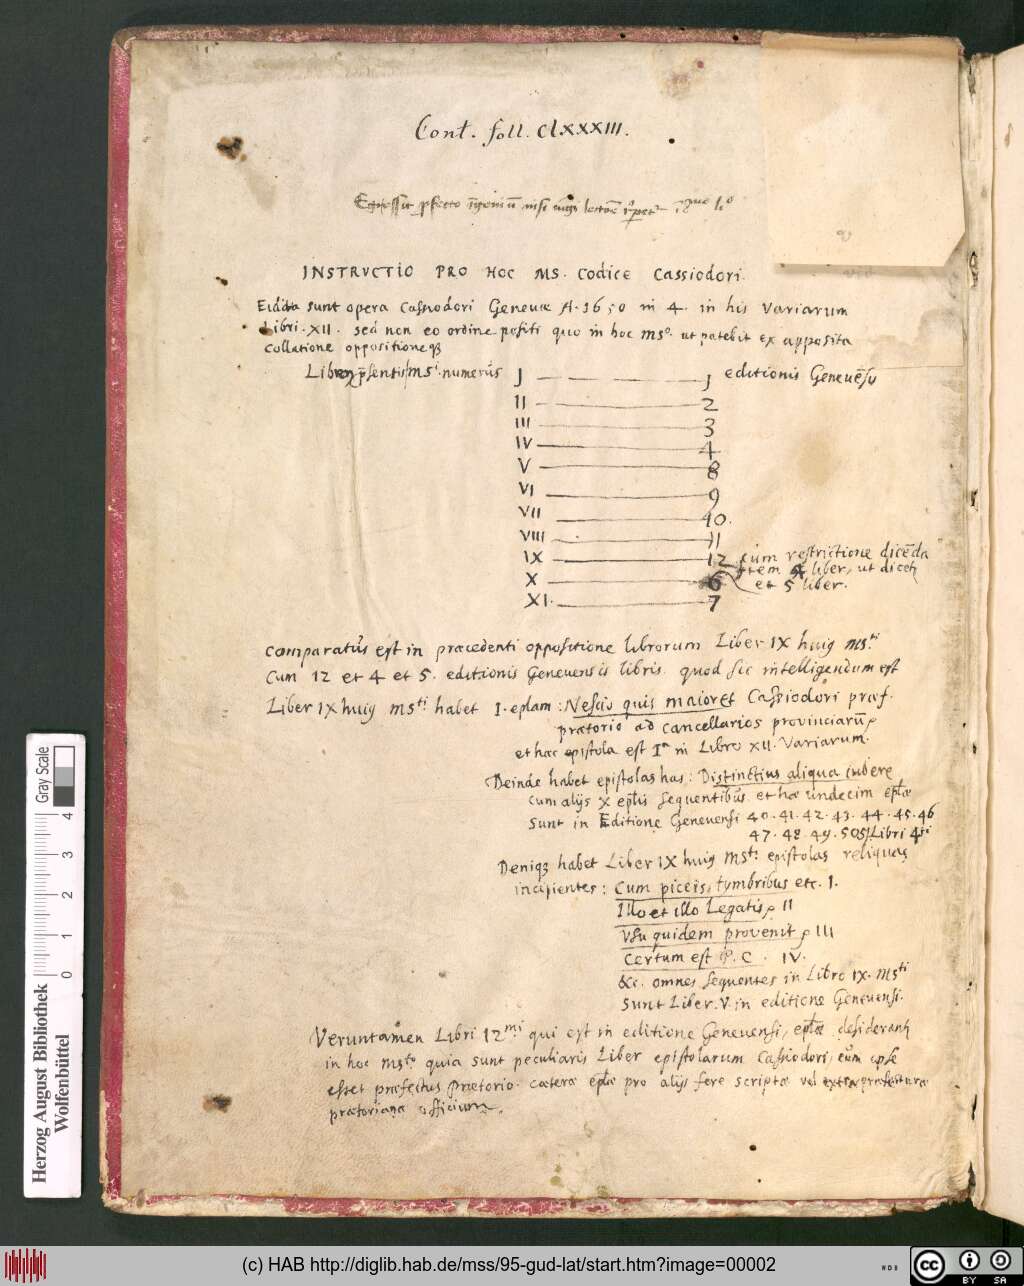 Cont. foll. CLXXXIII.
INSTRVCTIO PRO HOC MS. Codice Cassiodori.
Editta sunt opera Cassiodori Genevæ A. 1650 in 4. in his Variarum
Libri. XII. sed non eo ordine positi quo in hoc msº. ut patebit ex apposita
collatione oppositioneq3
psentis msⁱ numerus I — 1 editionis Genevēsis
II — 2
III — 3
IV — 4
V — 8
VI — 9
VII — 10.
VIII — 11
IX — 12 cum restrictione dicēda
item 4 liber, ut dicet
et 5 liber.
X — 6
XI. — 7
Comparatus est in præcedenti oppositione librorum Liber IX huiq msᵗⁱ
Cum 12 et 4 et 5. editionis Genevensis libris. quod sic intelligendum est
Liber IX huiq msᵗⁱ habet I. eplam: Nescio quis maior et Cassiodori præf.
prætorio ad cancellarios provinciarū
et hæc epistola est Iᵃ in Libro XII. Variarum.
Deinde habet epistolas has: Distinctius aliqua iubere
cum alijs X eplis sequentibus. et hæ undecim eplæ
sunt in Editione Genevensi 40. 41. 42. 43. 44. 45. 46
47. 48. 49. 50 Libri 4ᵗⁱ
Deniq3 habet Liber IX huiq msᵗⁱ epistolas reliquas
incipientes: Cum piceis, tymbribus etc. I.
Illo et illo Legatis II
Vsu quidem provenit III
Certum est P. C. IV.
&c. omnes sequentes in Libro IX. msᵗⁱ
sunt Liber. V. in editione Genevensi.
Veruntamen Libri 12ᵐⁱ qui est in editione Genevensi, eplæ desiderant
in hoc msᵗº quia sunt peculiaris Liber epistolarum Cassiodori, cum ipse
esset præfectus prætorio. cæteræ eplæ pro alijs fere scriptæ vel extra præfecturæ
prætorianæ officium.
Herzog August Bibliothek
Wolfenbüttel
Gray Scale
0 1 2 3 4
(c) HAB http://diglib.hab.de/mss/95-gud-lat/start.htm?image=00002
WDB
cc BY SA